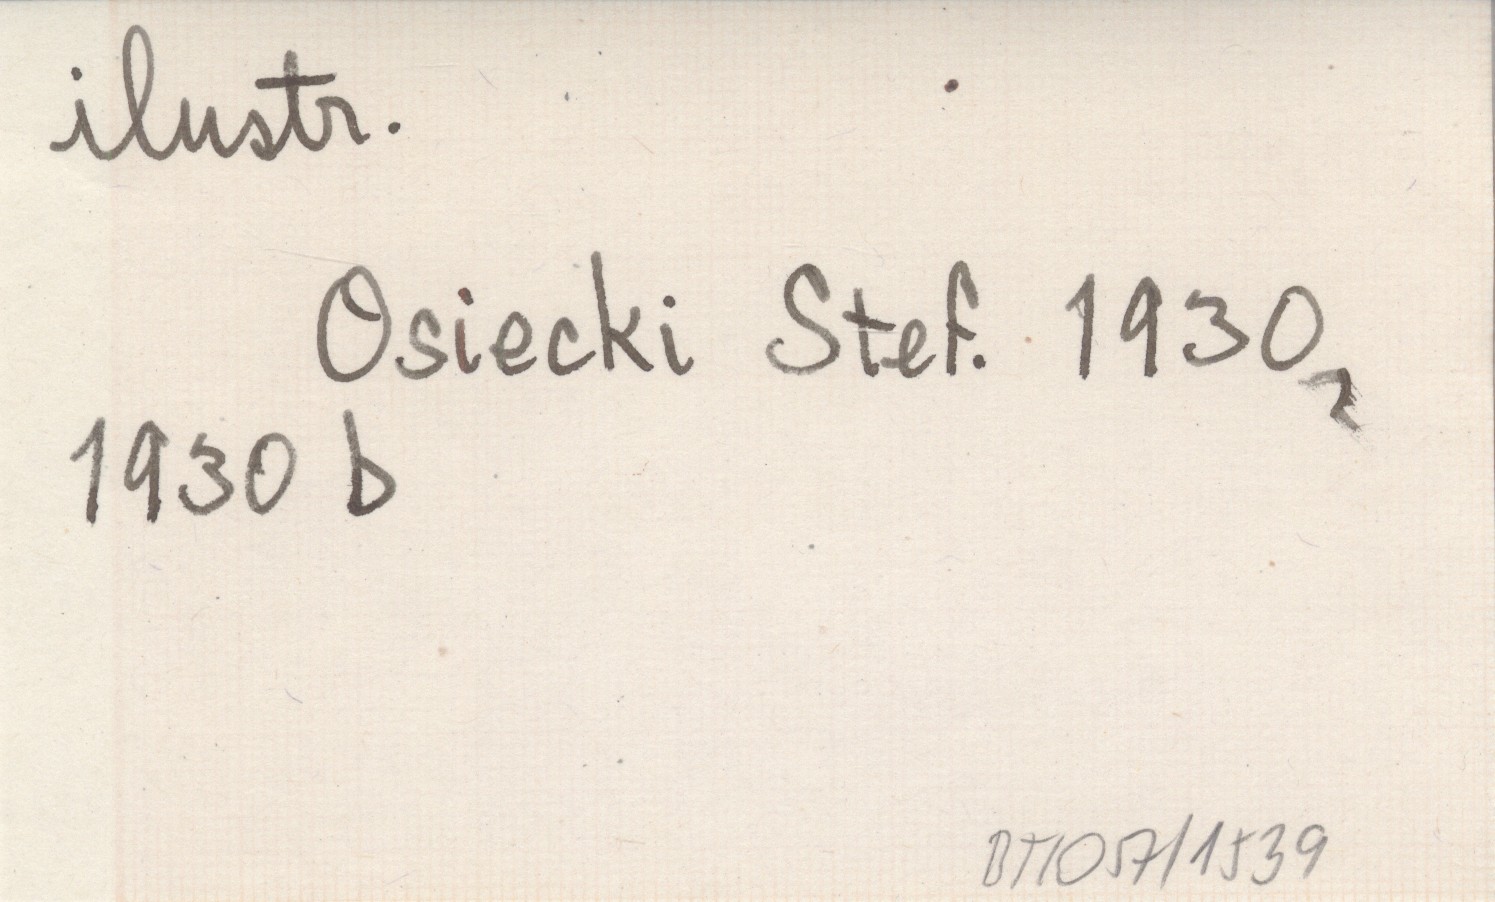 ilustr.
Osiecki Stef. 1930₂
1930 b
BT/057/1539